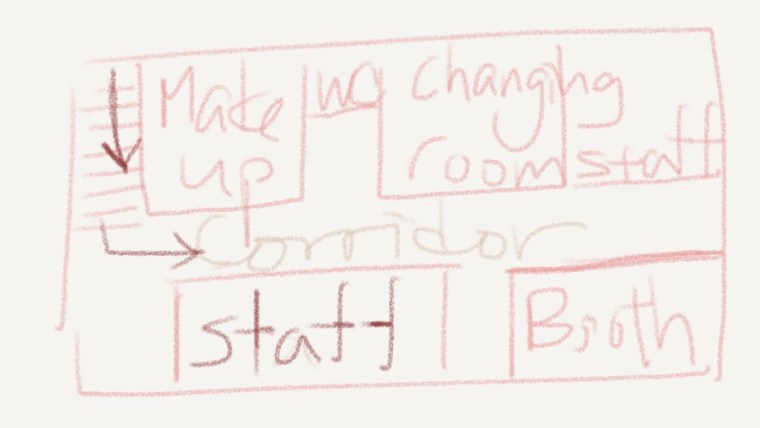 Make up
WC
Changing room
staff
Corridor
Staff
Booth